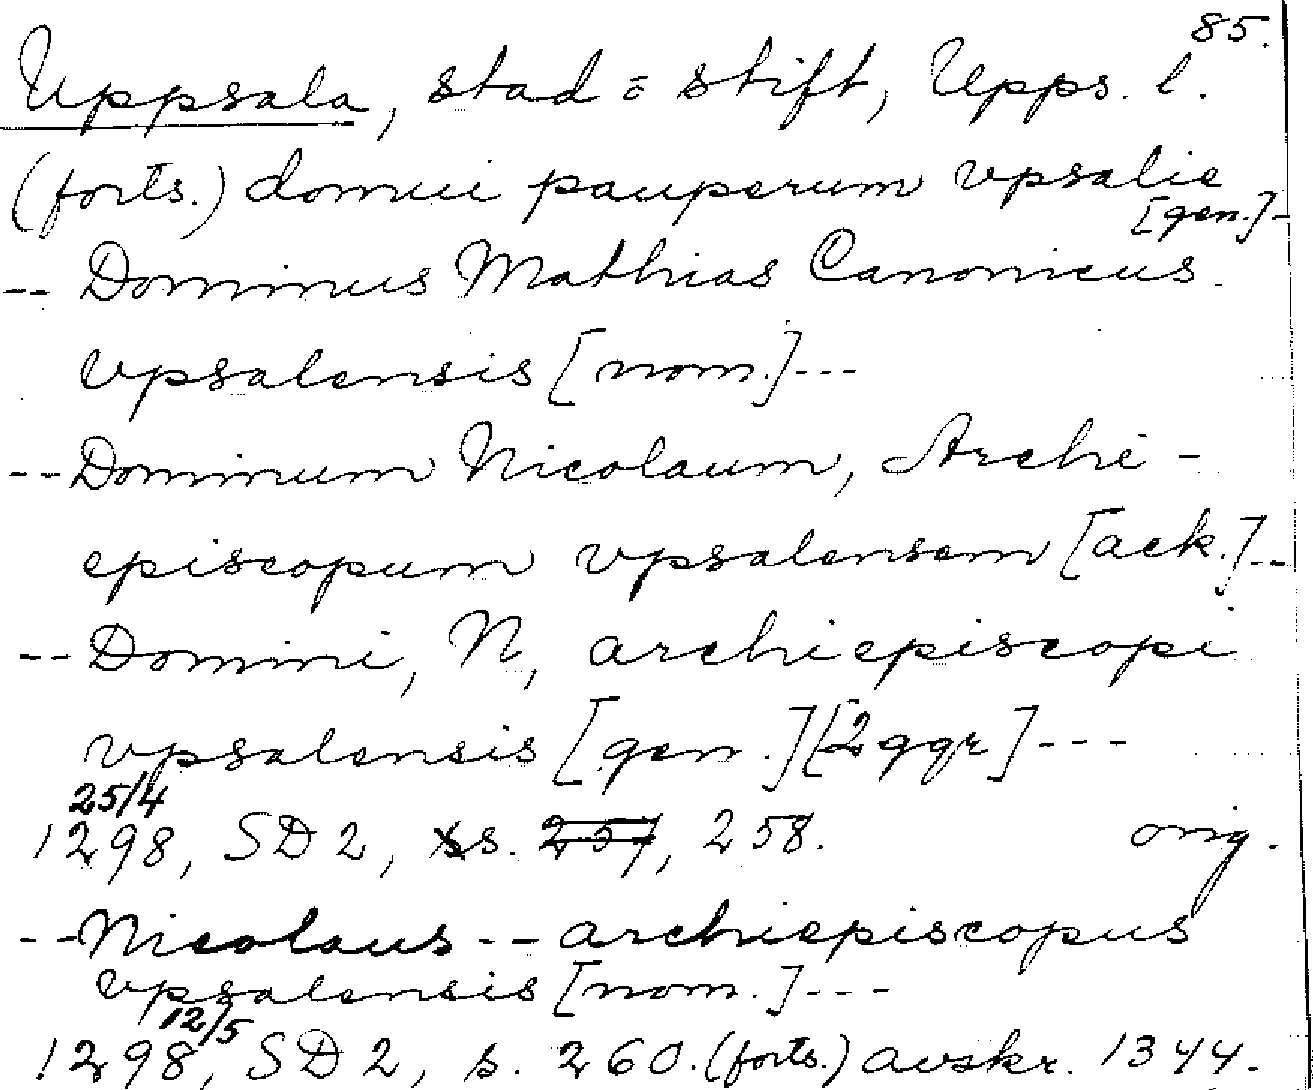 85.
Uppsala, stad = stift, Upps. l.
(forts.) domui pauperum vpsalie
[gen.]-
-- Dominus Mathias Canonicus
vpsalensis [nom.]---
-- Dominum Nicolaum, Archi-
episcopum vpsalensem [ack.]--
-- Domini, N, archiepiscopi
vpsalensis [gen.] [2 ggr]---
25/4
1298, SD 2, s. 257, 258. orig.
-- Nicolaus -- archiepiscopus
vpsalensis [nom.]---
12/5
1298, SD 2, s. 260. (forts.) avskr. 1344.